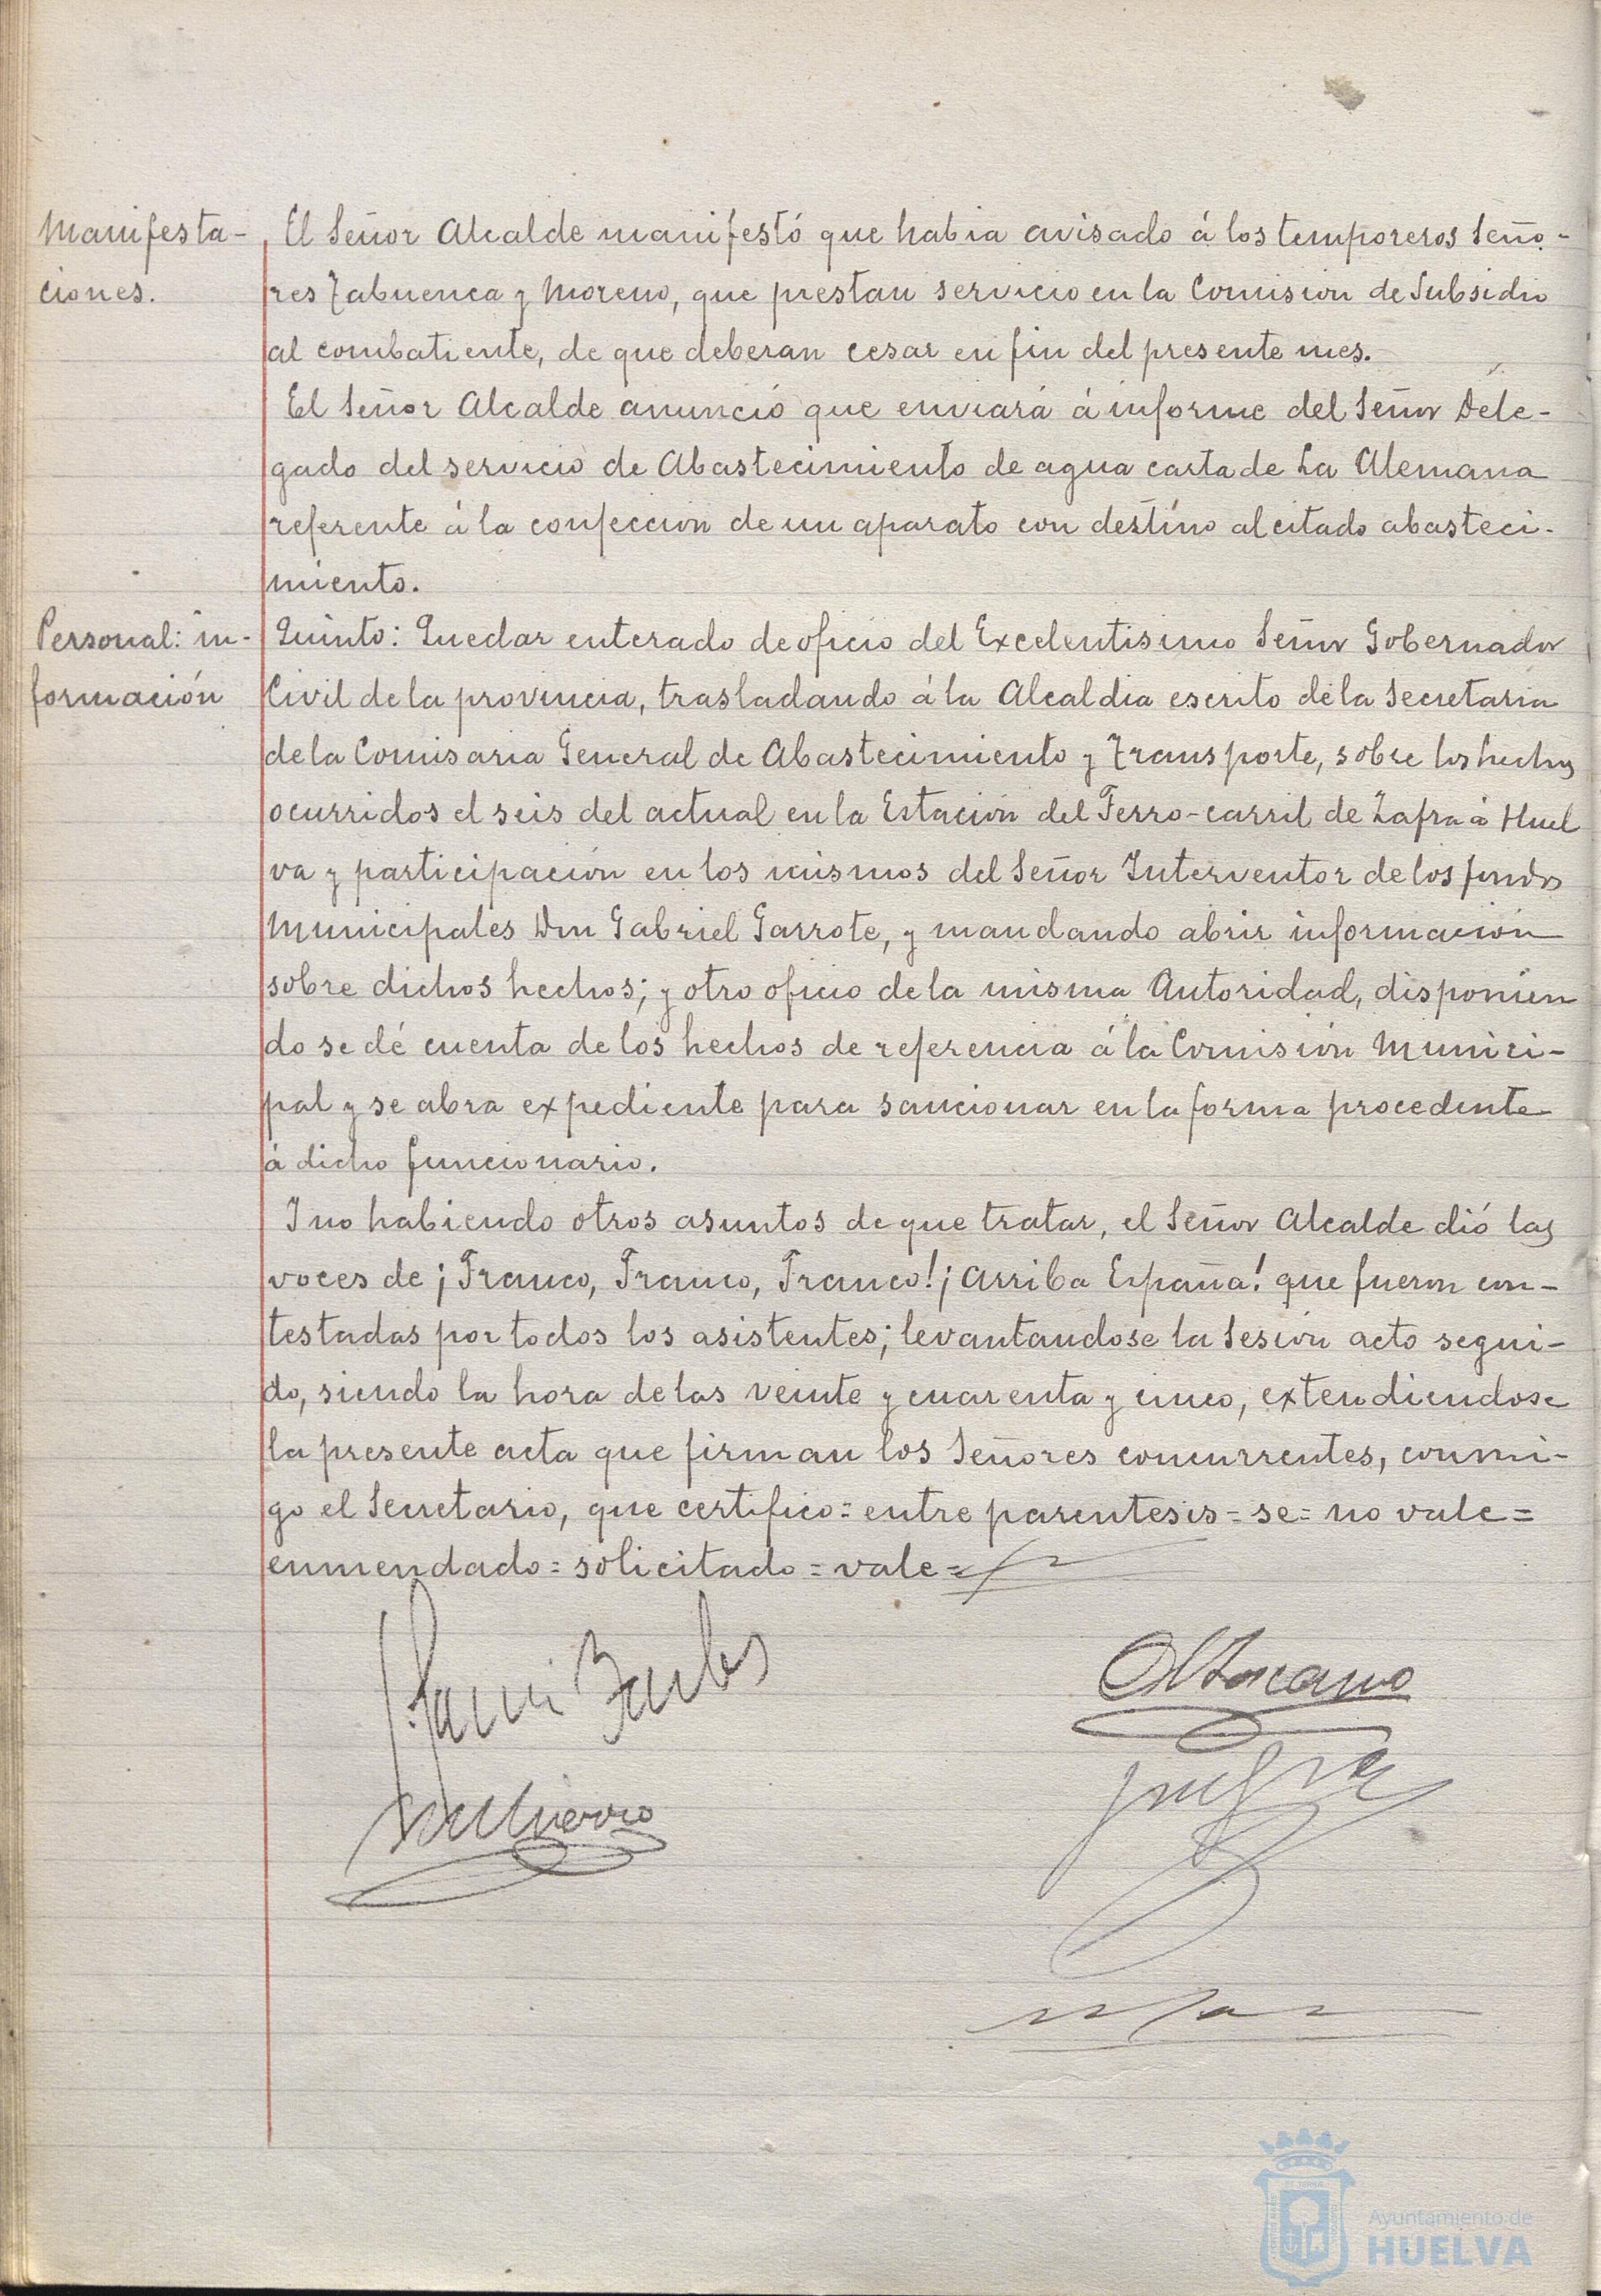 Manifesta-
ciones.
El Señor Alcalde manifestó que habia avisado á los temporeros Seño-
res Tabuenca y Moreno, que prestan servicio en la Comision de Subsidio
al combatiente, de que deberan cesar en fin del presente mes.
El Señor Alcalde anunció que enviará á informe del Señor Dele-
gado del servicio de Abastecimiento de agua carta de La Alemana
referente á la confeccion de un aparato con destino al citado abasteci-
miento.
Personal: in-
formación
Quinto: Quedar enterado de oficio del Excelentisimo Señor Gobernador
Civil de la provincia, trasladando á la Alcaldia escrito de la Secretaria
de la Comisaria General de Abastecimiento y Transporte, sobre los hechos
ocurridos el seis del actual en la Estación del Ferro-carril de Zafra á Huel
va y participación en los mismos del Señor Interventor de los fondos
municipales Don Gabriel Garrote, y mandando abrir información
sobre dichos hechos; y otro oficio de la misma Autoridad, disponien
do se dé cuenta de los hechos de referencia á la Comisión Munici-
pal y se abra expediente para sancionar en la forma procedente
á dicho funcionario.
Y no habiendo otros asuntos de que tratar, el Señor Alcalde dió las
voces de ¡Franco, Franco, Franco! ¡Arriba España! que fueron con-
testadas por todos los asistentes; levantandose la Sesión acto segui-
do, siendo la hora de las veinte y cuarenta y cinco, extendiendose
la presente acta que firman los Señores concurrentes, conmi-
go el Secretario, que certifico = entre parentesis = se = no vale =
enmendado = solicitado = vale =
Ayuntamiento de
HUELVA